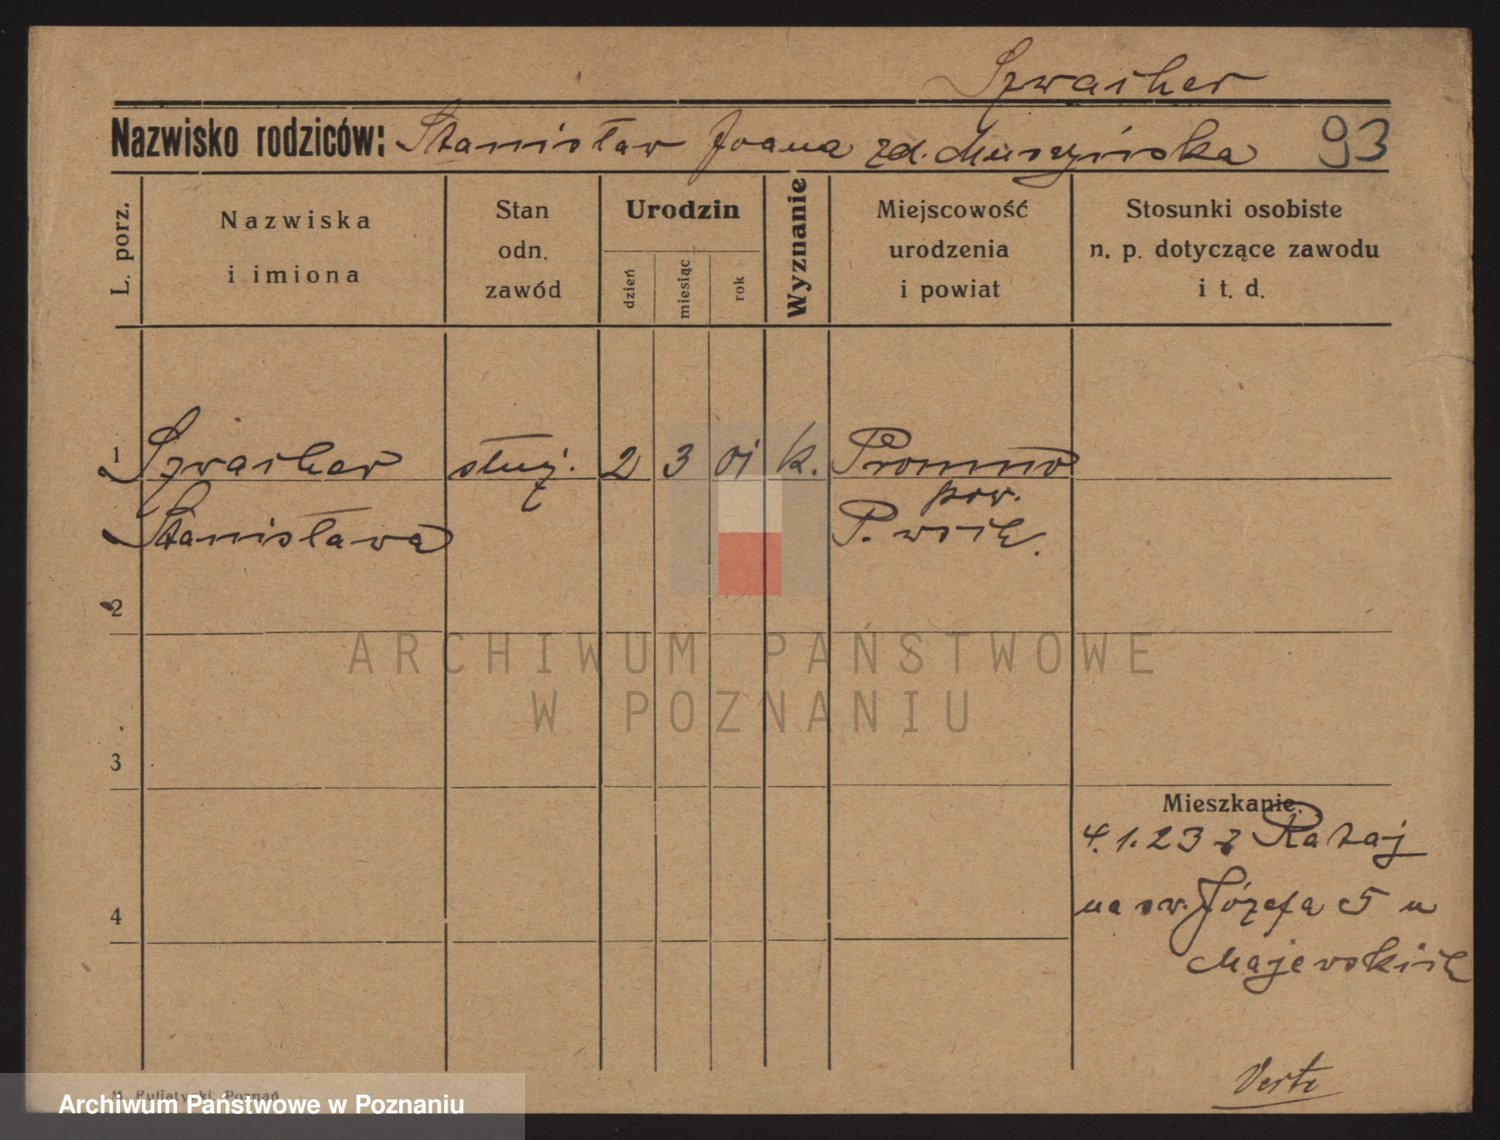 Szwarher
Nazwisko rodziców: Stanisław Joana zd. Muszyńska 93
L. porz.
Nazwiska
i imiona
Stan
odn.
zawód
Urodzin
dzień
miesiąc
rok
Wyznanie
Miejscowość
urodzenia
i powiat
Stosunki osobiste
n. p. dotyczące zawodu
i t. d.
1 Szwarher służ. 2 3 01 k. Promno
pow.
Stanisława P. wsch.
2
ARCHIWUM PAŃSTWOWE
W POZNANIU
3
Mieszkanie.
4.1.23 z Rataj
4
na św. Józefa 5 u
Majewskich
Verte
Poznań
Archiwum Państwowe w Poznaniu